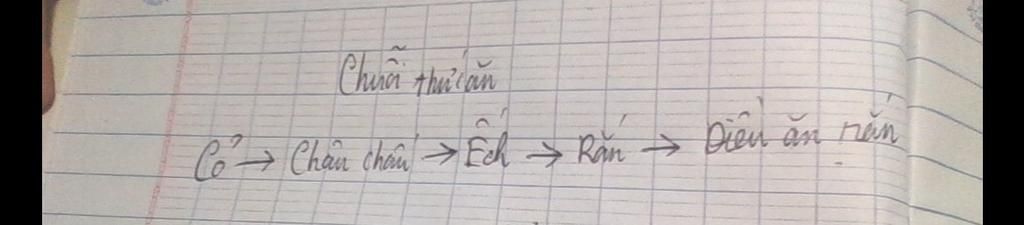 Chuỗi thức ăn
Cỏ → Châu chấu → Ếch → Rắn → Diều ăn rắn